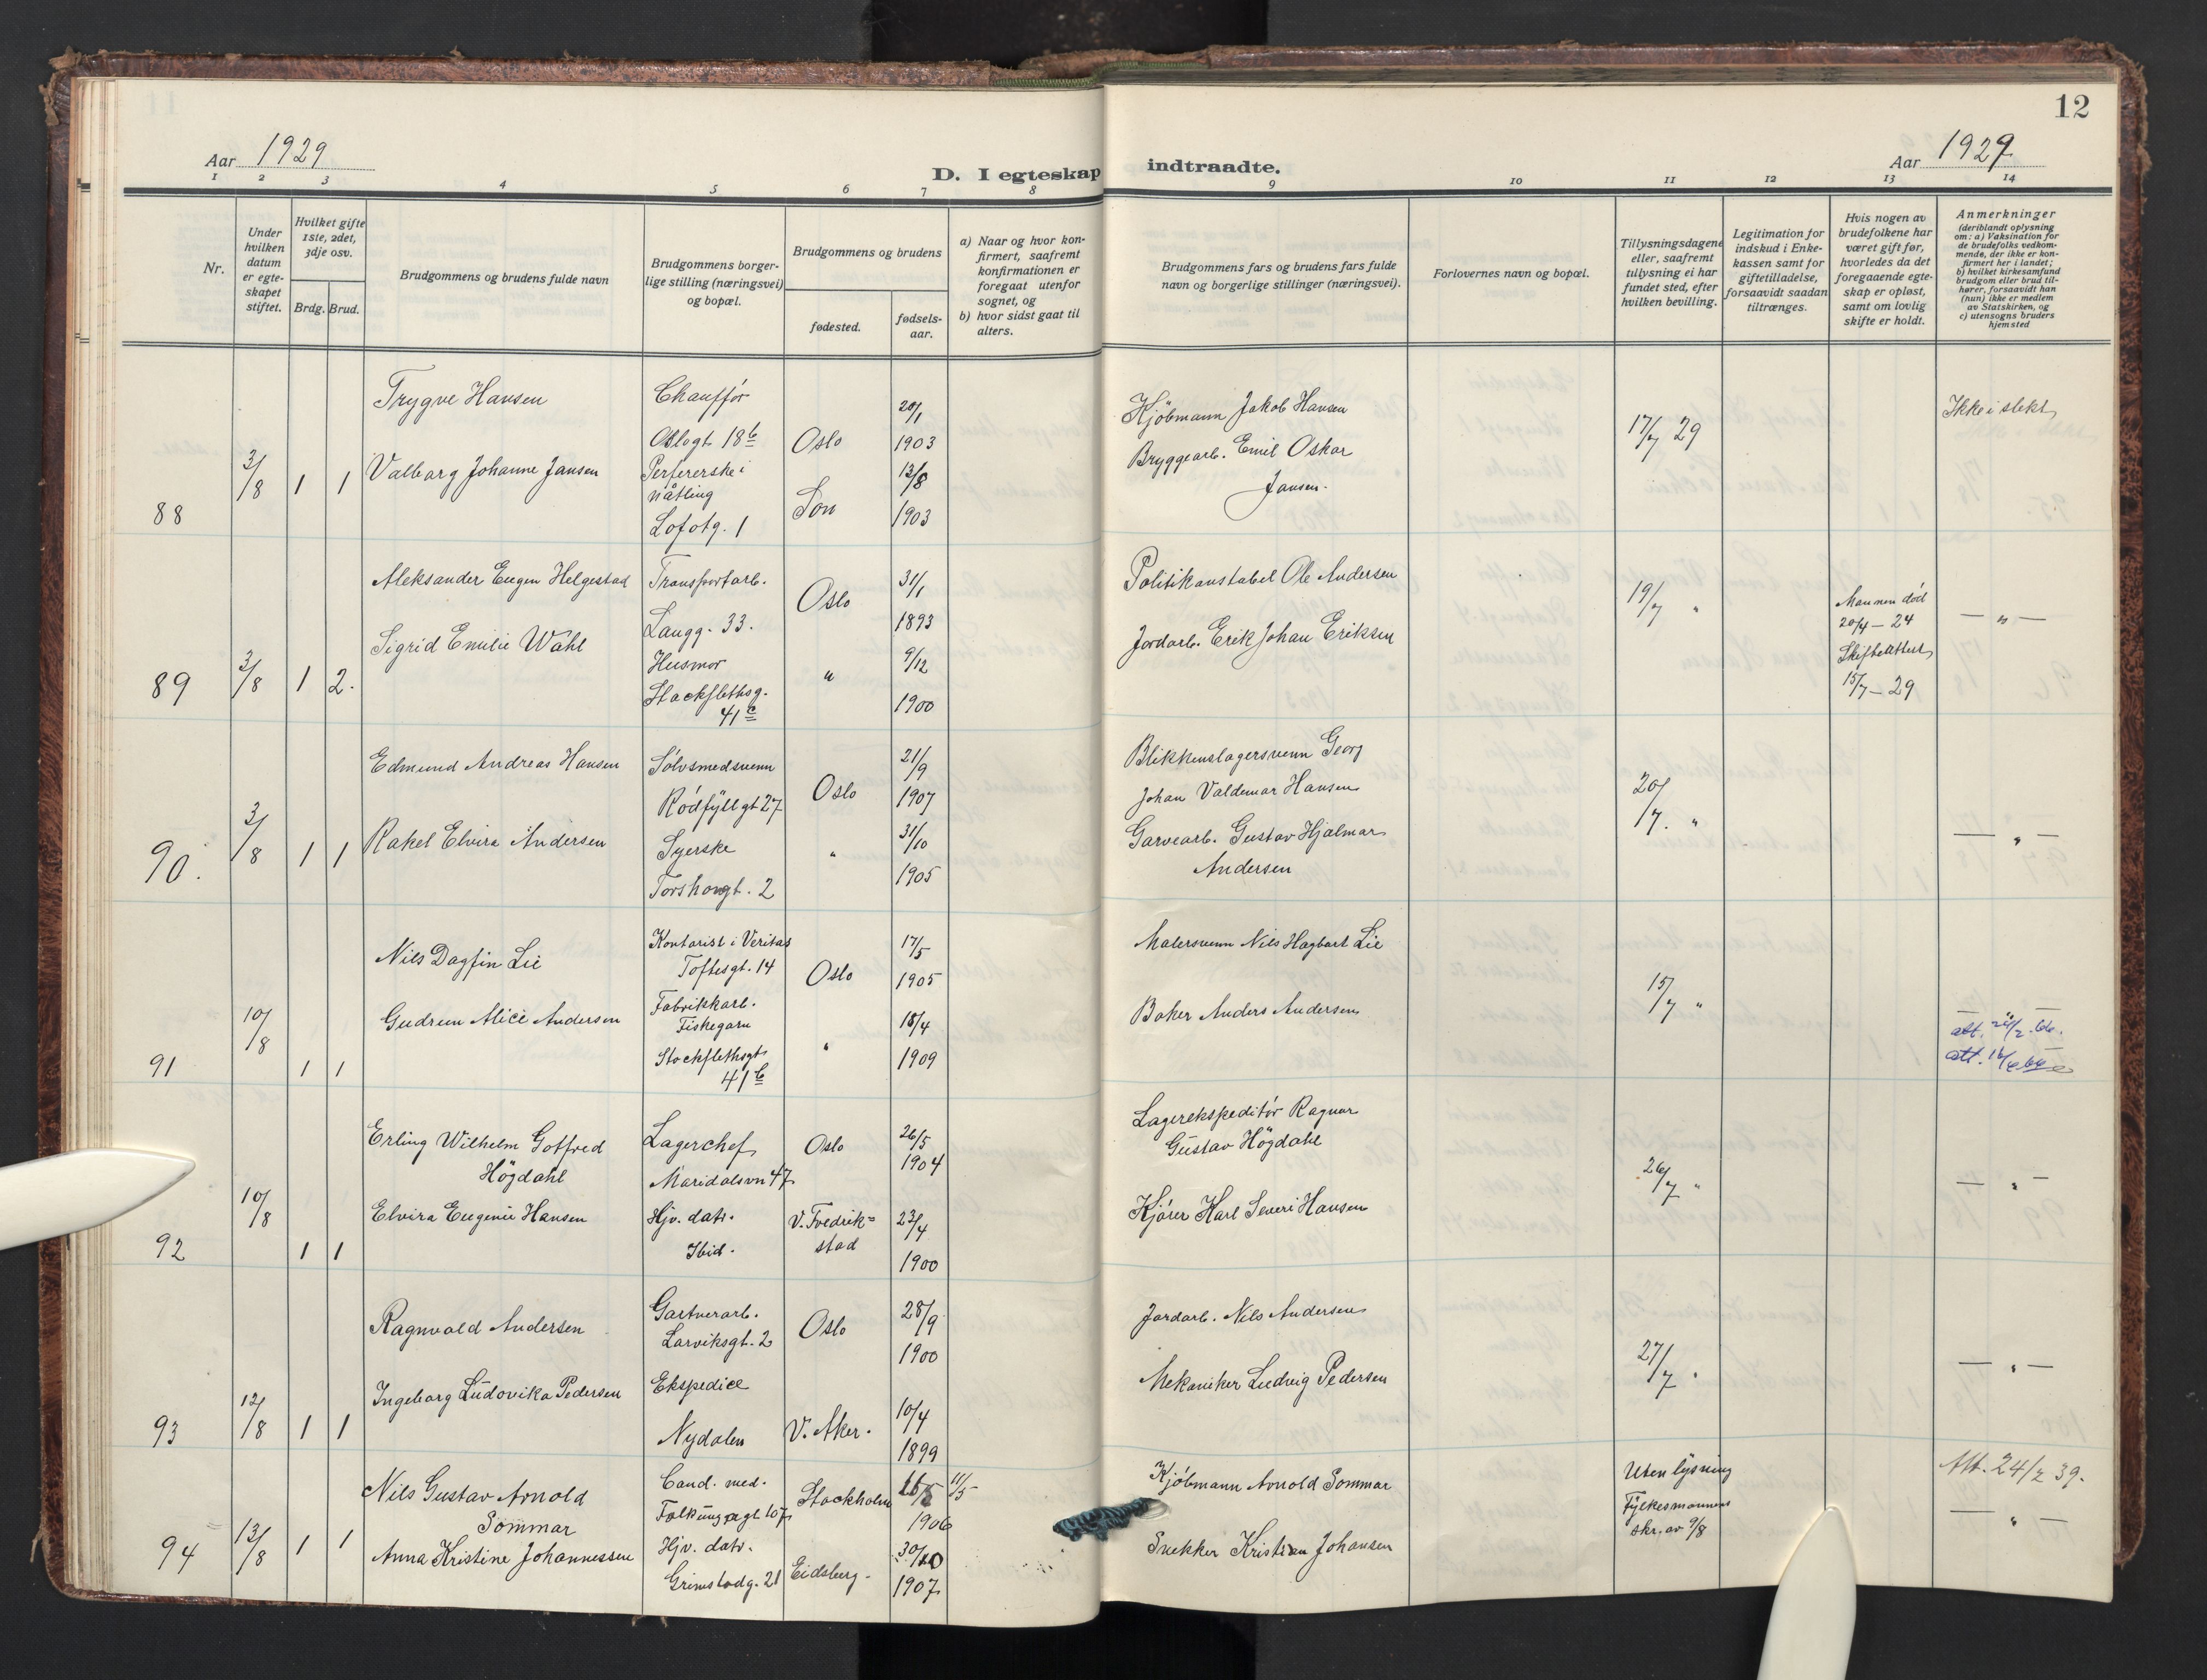 12
Aar 1929
D. I egteskap indtraadte.
Aar 1929
1 2 3 4 5 6 7 8 9 10 11 12 13 14
Nr.
Under hvilken datum er egte-skapet stiftet.
Hvilket gifte 1ste, 2det, 3dje osv.
Brdg. Brud.
Brudgommens og brudens fulde navn
Brudgommens borger-
lige stilling (næringsvei)
og bopæl.
Brudgommens og brudens
fødested.
fødsels-
aar.
a) Naar og hvor kon-
firmert, saafremt
konfirmationen er
foregaat utenfor
sognet, og
b) hvor sidst gaat til
alters.
Brudgommens fars og brudens fars fulde
navn og borgerlige stillinger (næringsvei).
Forlovernes navn og bopæl.
Tillysningsdagene
eller, saafremt
tillysning ei har
fundet sted, efter
hvilken bevilling.
Legitimation for
indskud i Enke-
kassen samt for
giftetilladelse,
forsaavidt saadan
tiltrænges.
Hvis nogen av
brudefolkene har
været gift før,
hvorledes da det
foregaaende egte-
skap er opløst,
samt om lovlig
skifte er holdt.
Anmerkninger
(deriblandt oplysning
om: a) Vaksination for
de brudefolks vedkom-
mende, der ikke er kon-
firmert her i landet;
b) hvilket kirkesamfund
brudgom eller brud til-
hører, forsaavidt han
(hun) ikke er medlem
av Statskirken, og
c) utensogns bruders
hjemsted
88
3/8
1 1
Trygve Hansen
Valborg Johanne Jansen
Chauffór
Oslogt 18b
i
Nåtling
Lofotg. 1
Oslo
Son
20/1
1903
13/8
1903
Kjöbmann Jakob Hansen
Bryggearb. Emil Oskar
Jansen.
17/7 29
Ikke i slekt
89
3/8
1 2.
Aleksander Eugen Helgestad
Sigrid Emilie Wahl
Transportarb.
Langg. 33.
Husmor
Stockflethsg.
41c
Oslo
"
31/1
1893
9/12
1900
Politikonstabel Ole Andersen
Jordarb. Erik Johan Eriksen
19/7 "
Mannen död
20/4 – 24
Skifteattest
15/7 – 29
— " —
90.
3/8
1 1
Edmund Andreas Hansen
Rakel Elvira Andersen
Sølvsmedsvenn
Rödfyllgt 27
Syerske
Torshovgt. 2
Oslo
"
21/9
1907
31/10
1905
Blikkenslagersvenn Georg
Johan Valdemar Hansen
Garvearb. Gustav Hjalmar
Andersen
20/7. "
— " —
91
10/8
1 1
Nils Dagfin Lie
Gudrun Alice Andersen
Kontorist i Veritas
Toftesgt. 14
Fabrikkarb.
Fiskegarn
Stockflethsgt
41b
Oslo
"
17/5
1905
18/4
1909
Malersvenn Nils Hagbart Lie
Baker Anders Andersen
15/7 "
— " —
att. /2. 66.
att. 16/
92
10/8
1 1
Erling Wilhelm Gotfred
Högdahl
Elvira Eugenie Hansen
Lagerchef
Maridalsvn 47
Hjv. datr.
Ibid.
Oslo
V. Fredrik=
stad
26/5
1904
23/4
1900
Lagerekspeditör Ragnar
Gustav Högdahl
Kjörer Karl Severi Hansen
26/7 "
— " —
93
12/8
1 1
Ragnvald Andersen
Ingeborg Ludovika Pedersen
Gartnerarb.
Larviksgt. 2
Ekspedice
Nydalen
Oslo
V. Aker.
28/9
1900
10/4
1899
Jordarb. Nils Andersen
Mekaniker Ludvig Pedersen
27/7 "
— " —
94
13/8
1 1
Nils Gustav Arnold
Sommar
Anna Kristine Johannessen
Cand. med.
Falkungagt 107
Hjv. datr.
Grimstadg. 21
Stockholm
Eidsberg.
11/5
1906
30/10
1907
Kjöbmann Arnold Sommar
Snekker Kristian Johansen
Uten lysning
Fylkesmannens
skr. av 9/8
Att. 24/2 39.
— " —